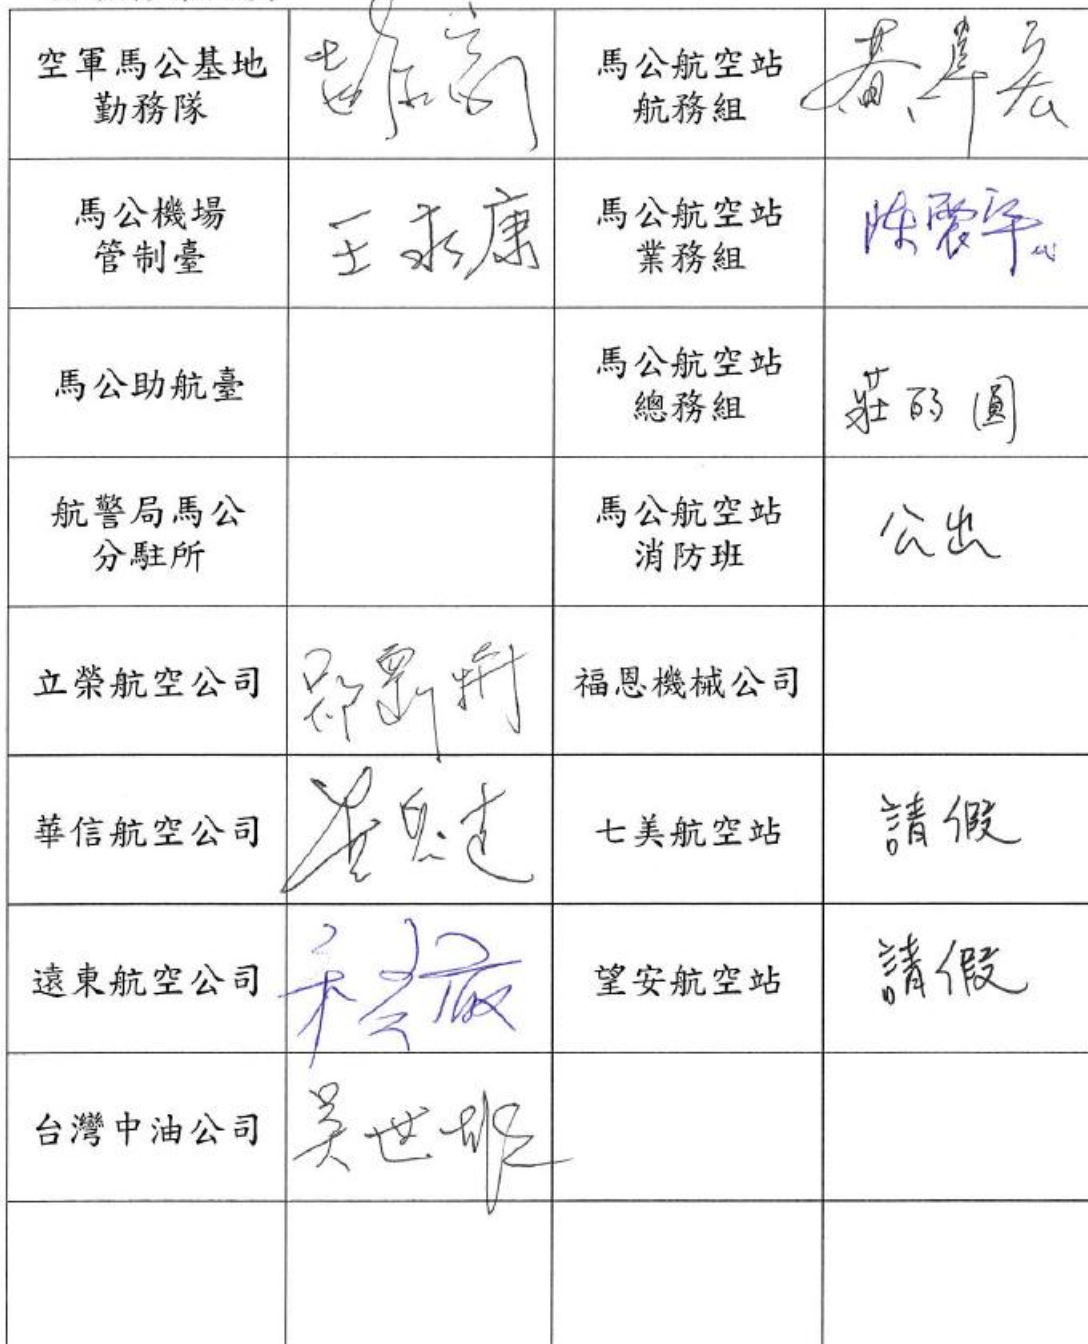 空軍馬公基地
勤務隊
馬公航空站
航務組
馬公機場
管制臺
王永康
馬公航空站
業務組
陳震平
馬公助航臺
馬公航空站
總務組
莊
圓
航警局馬公
分駐所
馬公航空站
消防班
公出
立榮航空公司
福恩機械公司
華信航空公司
七美航空站
請假
遠東航空公司
望安航空站
請假
台灣中油公司
吳世雄